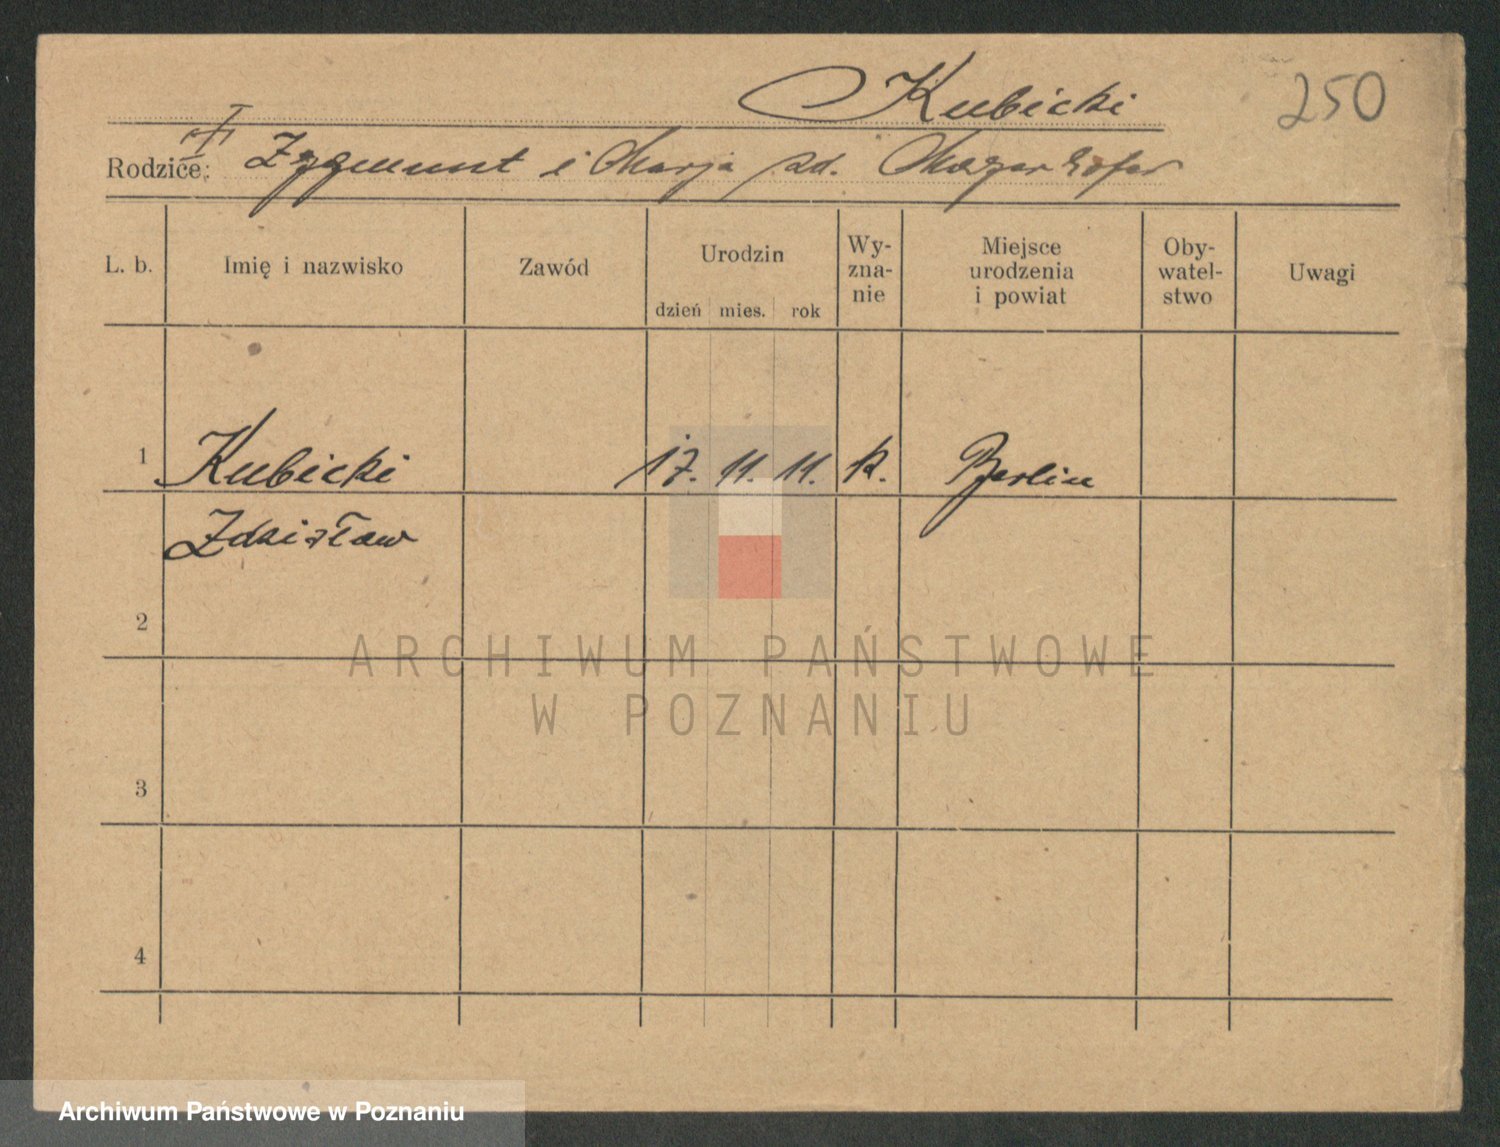 Kubicki 250
Rodzice: Zygmunt i Marja zd. Mayerhofer
L. b. Imię i nazwisko Zawód Urodzin Wy-
zna-
nie Miejsce
urodzenia
i powiat Oby-
watel-
stwo Uwagi
dzień mies. rok
1 Kubicki 17. 11. 11. k. Berlin
Zdzisław
2
ARCHIWUM PAŃSTWOWE
W POZNANIU
3
4
Archiwum Państwowe w Poznaniu